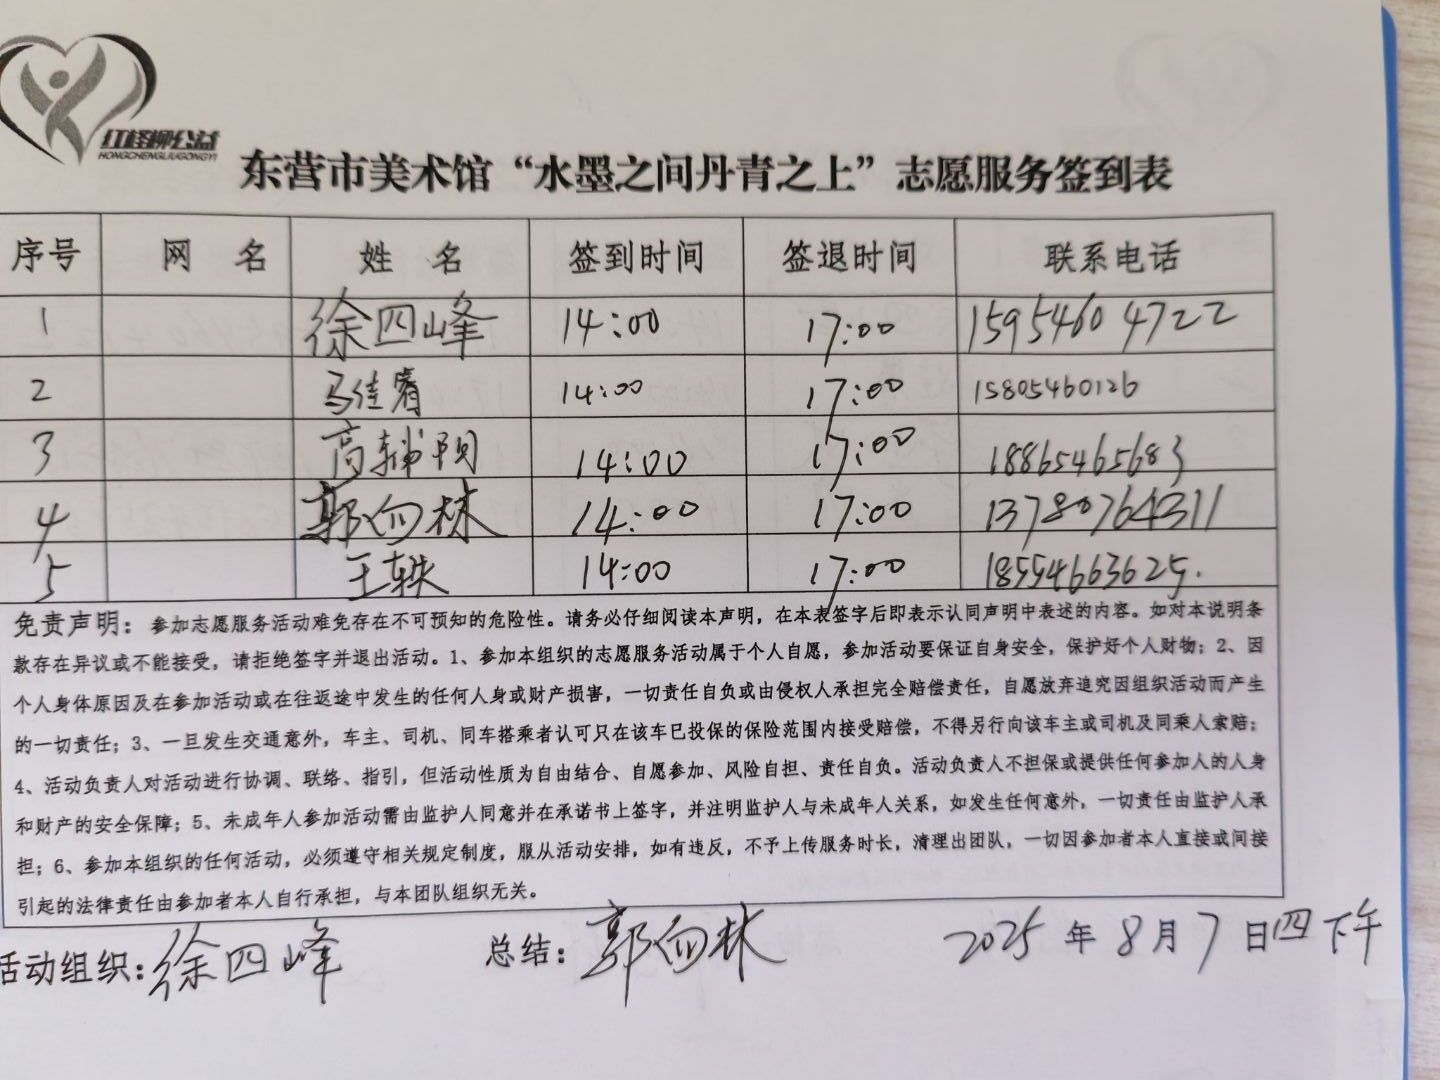 红柽柳公益
HONGCHENGLIUGONGYI
东营市美术馆“水墨之间丹青之上”志愿服务签到表
序号 网 名 姓 名 签到时间 签退时间 联系电话
1 徐四峰 14:00 17:00 15954604722
2 马佳睿 14:00 17:00 15805460126
3 高辅阳 14:00 17:00 18865465683
4 郭向林 14:00 17:00 13780764311
5 王轶 14:00 17:00 18554663625.
免责声明：参加志愿服务活动难免存在不可预知的危险性。请务必仔细阅读本声明，在本表签字后即表示认同声明中表述的内容。如对本说明条
款存在异议或不能接受，请拒绝签字并退出活动。1、参加本组织的志愿服务活动属于个人自愿，参加活动要保证自身安全，保护好个人财物；2、因
个人身体原因及在参加活动或在往返途中发生的任何人身或财产损害，一切责任自负或由侵权人承担完全赔偿责任，自愿放弃追究因组织活动而产生
的一切责任；3、一旦发生交通意外，车主、司机、同车搭乘者认可只在该车已投保的保险范围内接受赔偿，不得另行向该车主或司机及同乘人索赔；
4、活动负责人对活动进行协调、联络、指引，但活动性质为自由结合、自愿参加、风险自担、责任自负。活动负责人不担保或提供任何参加人的人身
和财产的安全保障；5、未成年人参加活动需由监护人同意并在承诺书上签字，并注明监护人与未成年人关系，如发生任何意外，一切责任由监护人承
担；6、参加本组织的任何活动，必须遵守相关规定制度，服从活动安排，如有违反，不予上传服务时长，清理出团队，一切因参加者本人直接或间接
引起的法律责任由参加者本人自行承担，与本团队组织无关。
活动组织：徐四峰 总结：郭向林 2025年8月7日四下午